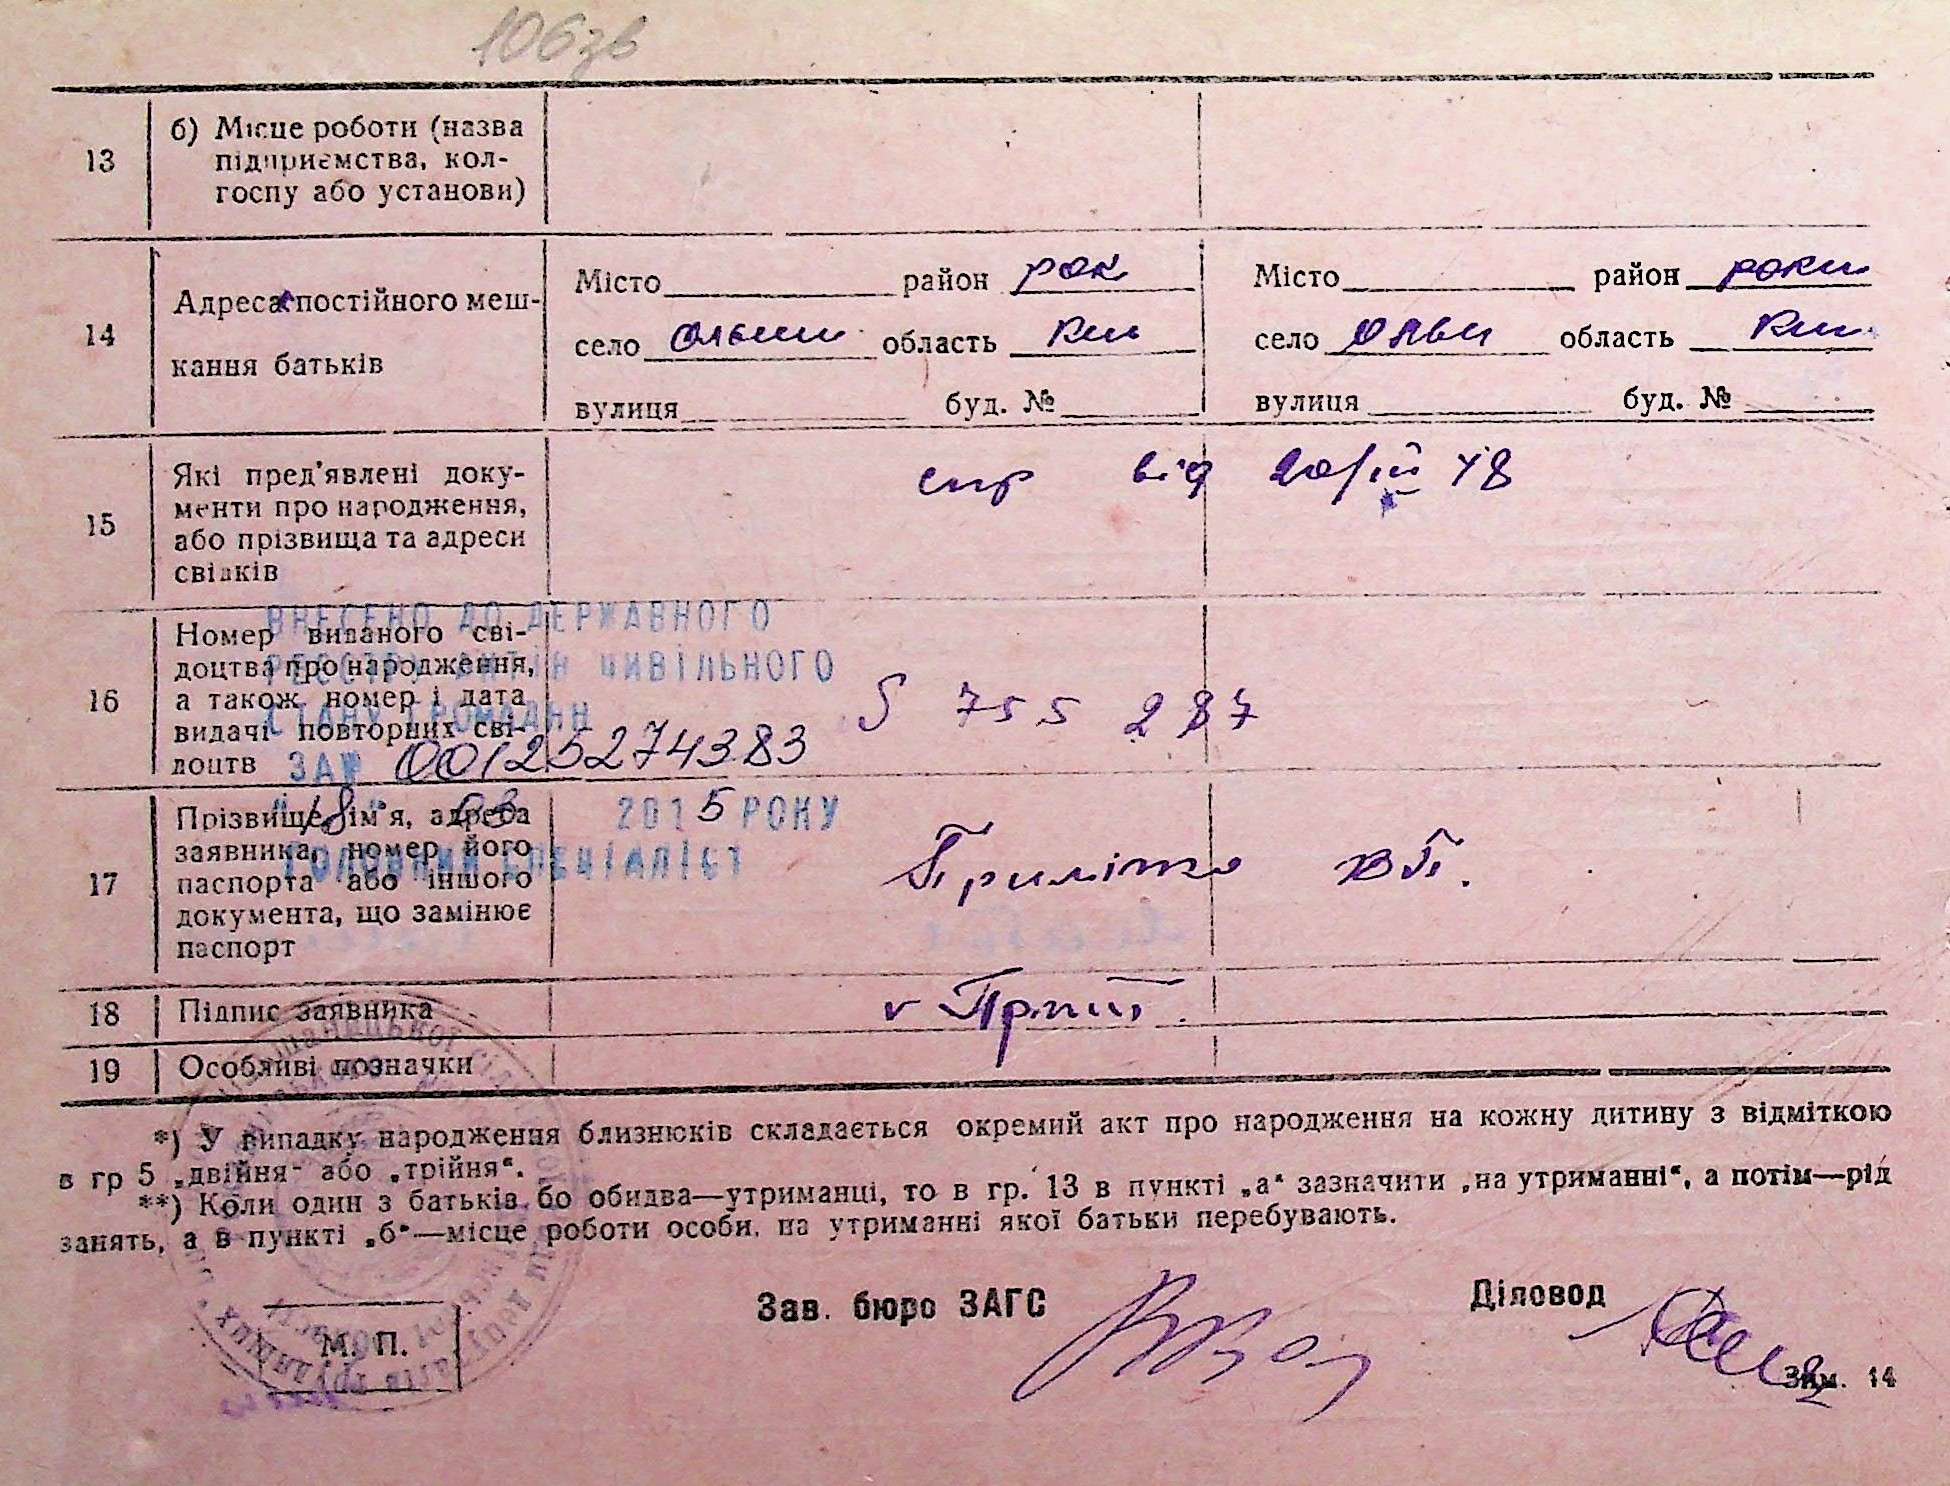 106зв
13 б) Місце роботи (назва
підприємства, кол-
госпу або установи)
14 Адреса постійного меш-
кання батьків
Місто район рок
село Ольши область Ки
вулиця буд. №
Місто район роки
село Ольш область Ки
вулиця буд. №
15 Які пред'явлені доку-
менти про народження,
або прізвища та адреси
свідків
спр від 20/III 48
16 Номер виданого сві-
доцтва про народження,
а також номер і дата
видачі повторних сві-
доцтв
S 755 287
ВНЕСЕНО ДО ДЕРЖАВНОГО
РЕЄСТРУ АКТІВ ЦИВІЛЬНОГО
СТАНУ ГРОМАДЯН
ЗА № 00125274383
"18" 03 2015 РОКУ
ГОЛОВНИЙ СПЕЦІАЛІСТ
17 Прізвище, ім'я, адреса
заявника, номер його
паспорта або іншого
документа, що замінює
паспорт
В П.
18 Підпис заявника
19 Особливі позначки
*) У випадку народження близнюків складається окремий акт про народження на кожну дитину з відміткою
в гр 5 „двійня" або „трійня".
**) Коли один з батьків бо обидва—утриманці, то в гр. 13 в пункті „а" зазначити „на утриманні", а потім—рід
занять, а в пункті „б"—місце роботи особи, на утриманні якої батьки перебувають.
Зав. бюро ЗАГС
Діловод
М. П.
Зам. 14